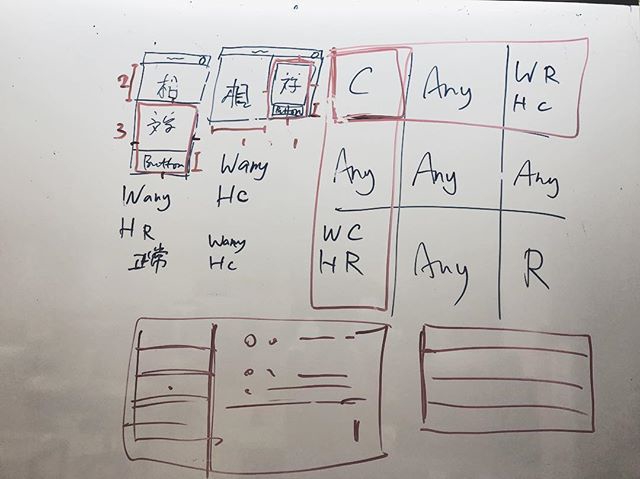 2
3
相
文字
Button
Wany
HR
正常
相
字
Button
1
1
Wany
HC
Wany
HC
C
Any
WR
HC
Any
Any
Any
WC
HR
Any
R